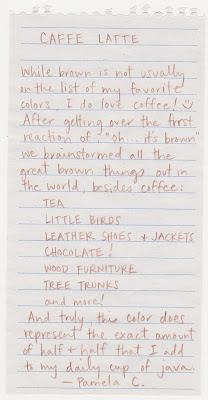 CAFFE LATTE
While brown is not usually
on the list of my favorite
colors, I do love coffee! ☺
After getting over the first
reaction of, "oh... it's brown"
we brainstormed all the
great brown things out in
the world, besides coffee:
TEA
LITTLE BIRDS
LEATHER SHOES & JACKETS
CHOCOLATE!
WOOD FURNITURE
TREE TRUNKS
and more!
And truly, this color does
represent the exact amount
of half & half that I add
to my daily cup of java.
— Pamela C.